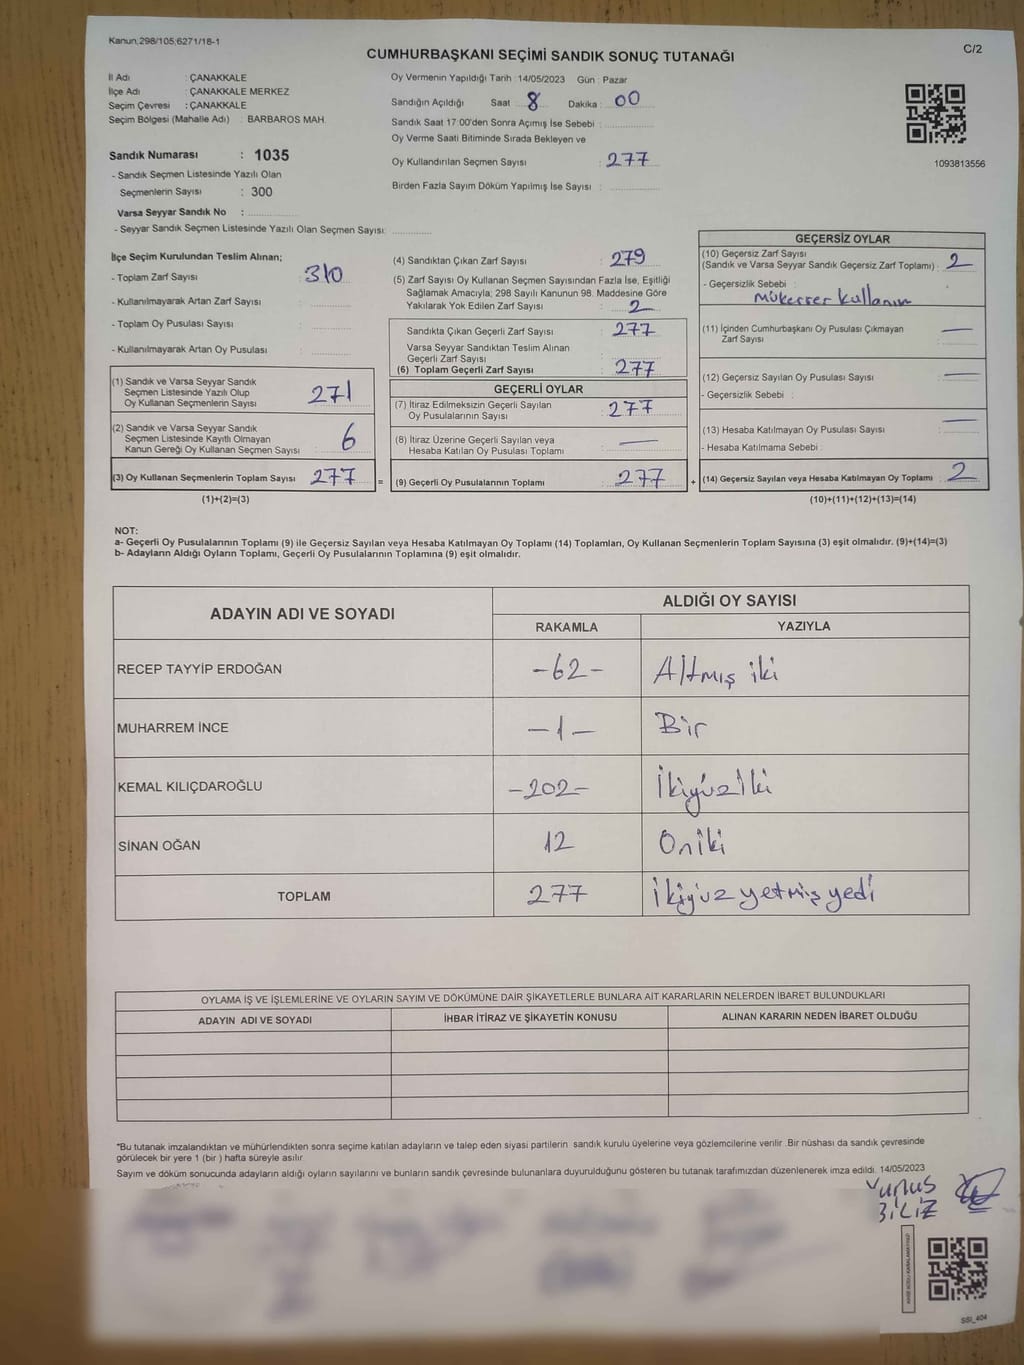 Kanun;298/105;6271/18-1
C/2
CUMHURBAŞKANI SEÇİMİ SANDIK SONUÇ TUTANAĞI
İl Adı : ÇANAKKALE
İlçe Adı : ÇANAKKALE MERKEZ
Seçim Çevresi : ÇANAKKALE
Seçim Bölgesi (Mahalle Adı) : BARBAROS MAH.
Sandık Numarası : 1035
- Sandık Seçmen Listesinde Yazılı Olan
Seçmenlerin Sayısı : 300
Varsa Seyyar Sandık No :
- Seyyar Sandık Seçmen Listesinde Yazılı Olan Seçmen Sayısı:
Oy Vermenin Yapıldığı Tarih : 14/05/2023 Gün : Pazar
Sandığın Açıldığı Saat 8 Dakika : 00
Sandık Saat 17:00'den Sonra Açımış İse Sebebi :
Oy Verme Saati Bitiminde Sırada Bekleyen ve
Oy Kullandırılan Seçmen Sayısı : 277
Birden Fazla Sayım Döküm Yapılmış İse Sayısı :
1093813556
İlçe Seçim Kurulundan Teslim Alınan;
- Toplam Zarf Sayısı : 310
- Kullanılmayarak Artan Zarf Sayısı :
- Toplam Oy Pusulası Sayısı :
- Kullanılmayarak Artan Oy Pusulası :
(1) Sandık ve Varsa Seyyar Sandık
Seçmen Listesinde Yazılı Olup
Oy Kullanan Seçmenlerin Sayısı : 271
(2) Sandık ve Varsa Seyyar Sandık
Seçmen Listesinde Kayıtlı Olmayan
Kanun Gereği Oy Kullanan Seçmen Sayısı : 6
(3) Oy Kullanan Seçmenlerin Toplam Sayısı : 277
(1)+(2)=(3)
(4) Sandıktan Çıkan Zarf Sayısı : 279
(5) Zarf Sayısı Oy Kullanan Seçmen Sayısından Fazla İse, Eşitliği
Sağlamak Amacıyla; 298 Sayılı Kanunun 98. Maddesine Göre
Yakılarak Yok Edilen Zarf Sayısı : 2
Sandıkta Çıkan Geçerli Zarf Sayısı : 277
Varsa Seyyar Sandıktan Teslim Alınan
Geçerli Zarf Sayısı :
(6) Toplam Geçerli Zarf Sayısı : 277
GEÇERLİ OYLAR
(7) İtiraz Edilmeksizin Geçerli Sayılan
Oy Pusulalarının Sayısı : 277
(8) İtiraz Üzerine Geçerli Sayılan veya
Hesaba Katılan Oy Pusulası Toplamı : —
= (9) Geçerli Oy Pusulalarının Toplamı : 277
GEÇERSİZ OYLAR
(10) Geçersiz Zarf Sayısı
(Sandık ve Varsa Seyyar Sandık Geçersiz Zarf Toplamı) : 2
- Geçersizlik Sebebi :
Mükerrer kullanım
(11) İçinden Cumhurbaşkanı Oy Pusulası Çıkmayan
Zarf Sayısı : —
(12) Geçersiz Sayılan Oy Pusulası Sayısı : —
- Geçersizlik Sebebi :
(13) Hesaba Katılmayan Oy Pusulası Sayısı : —
- Hesaba Katılmama Sebebi :
+ (14) Geçersiz Sayılan veya Hesaba Katılmayan Oy Toplamı : 2
(10)+(11)+(12)+(13)=(14)
NOT:
a- Geçerli Oy Pusulalarının Toplamı (9) ile Geçersiz Sayılan veya Hesaba Katılmayan Oy Toplamı (14) Toplamları, Oy Kullanan Seçmenlerin Toplam Sayısına (3) eşit olmalıdır. (9)+(14)=(3)
b- Adayların Aldığı Oyların Toplamı, Geçerli Oy Pusulalarının Toplamına (9) eşit olmalıdır.
ADAYIN ADI VE SOYADI ALDIĞI OY SAYISI
RAKAMLA YAZIYLA
RECEP TAYYİP ERDOĞAN -62- Altmış iki
MUHARREM İNCE -1- Bir
KEMAL KILIÇDAROĞLU -202- İkiyüziki
SİNAN OĞAN 12 Oniki
TOPLAM 277 İkiyüz yetmiş yedi
OYLAMA İŞ VE İŞLEMLERİNE VE OYLARIN SAYIM VE DÖKÜMÜNE DAİR ŞİKAYETLERLE BUNLARA AİT KARARLARIN NELERDEN İBARET BULUNDUKLARI
ADAYIN ADI VE SOYADI İHBAR İTİRAZ VE ŞİKAYETİN KONUSU ALINAN KARARIN NEDEN İBARET OLDUĞU
*Bu tutanak imzalandıktan ve mühürlendikten sonra seçime katılan adayların ve talep eden siyasi partilerin sandık kurulu üyelerine veya gözlemcilerine verilir .Bir nüshası da sandık çevresinde
görülecek bir yere 1 (bir ) hafta süreyle asılır.
Sayım ve döküm sonucunda adayların aldığı oyların sayılarını ve bunların sandık çevresinde bulunanlara duyurulduğunu gösteren bu tutanak tarafımızdan düzenlenerek imza edildi. 14/05/2023
Yunus
BİLİZ
SSI_404